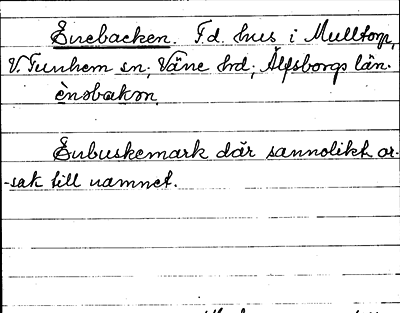 Enebacken. F.d. hus i Mulltorp,
V. Tunhem sn; Väne hd; Älfsborgs län.
ènəbakən
Enbuskemark där sannolikt or-
-sak till namnet.